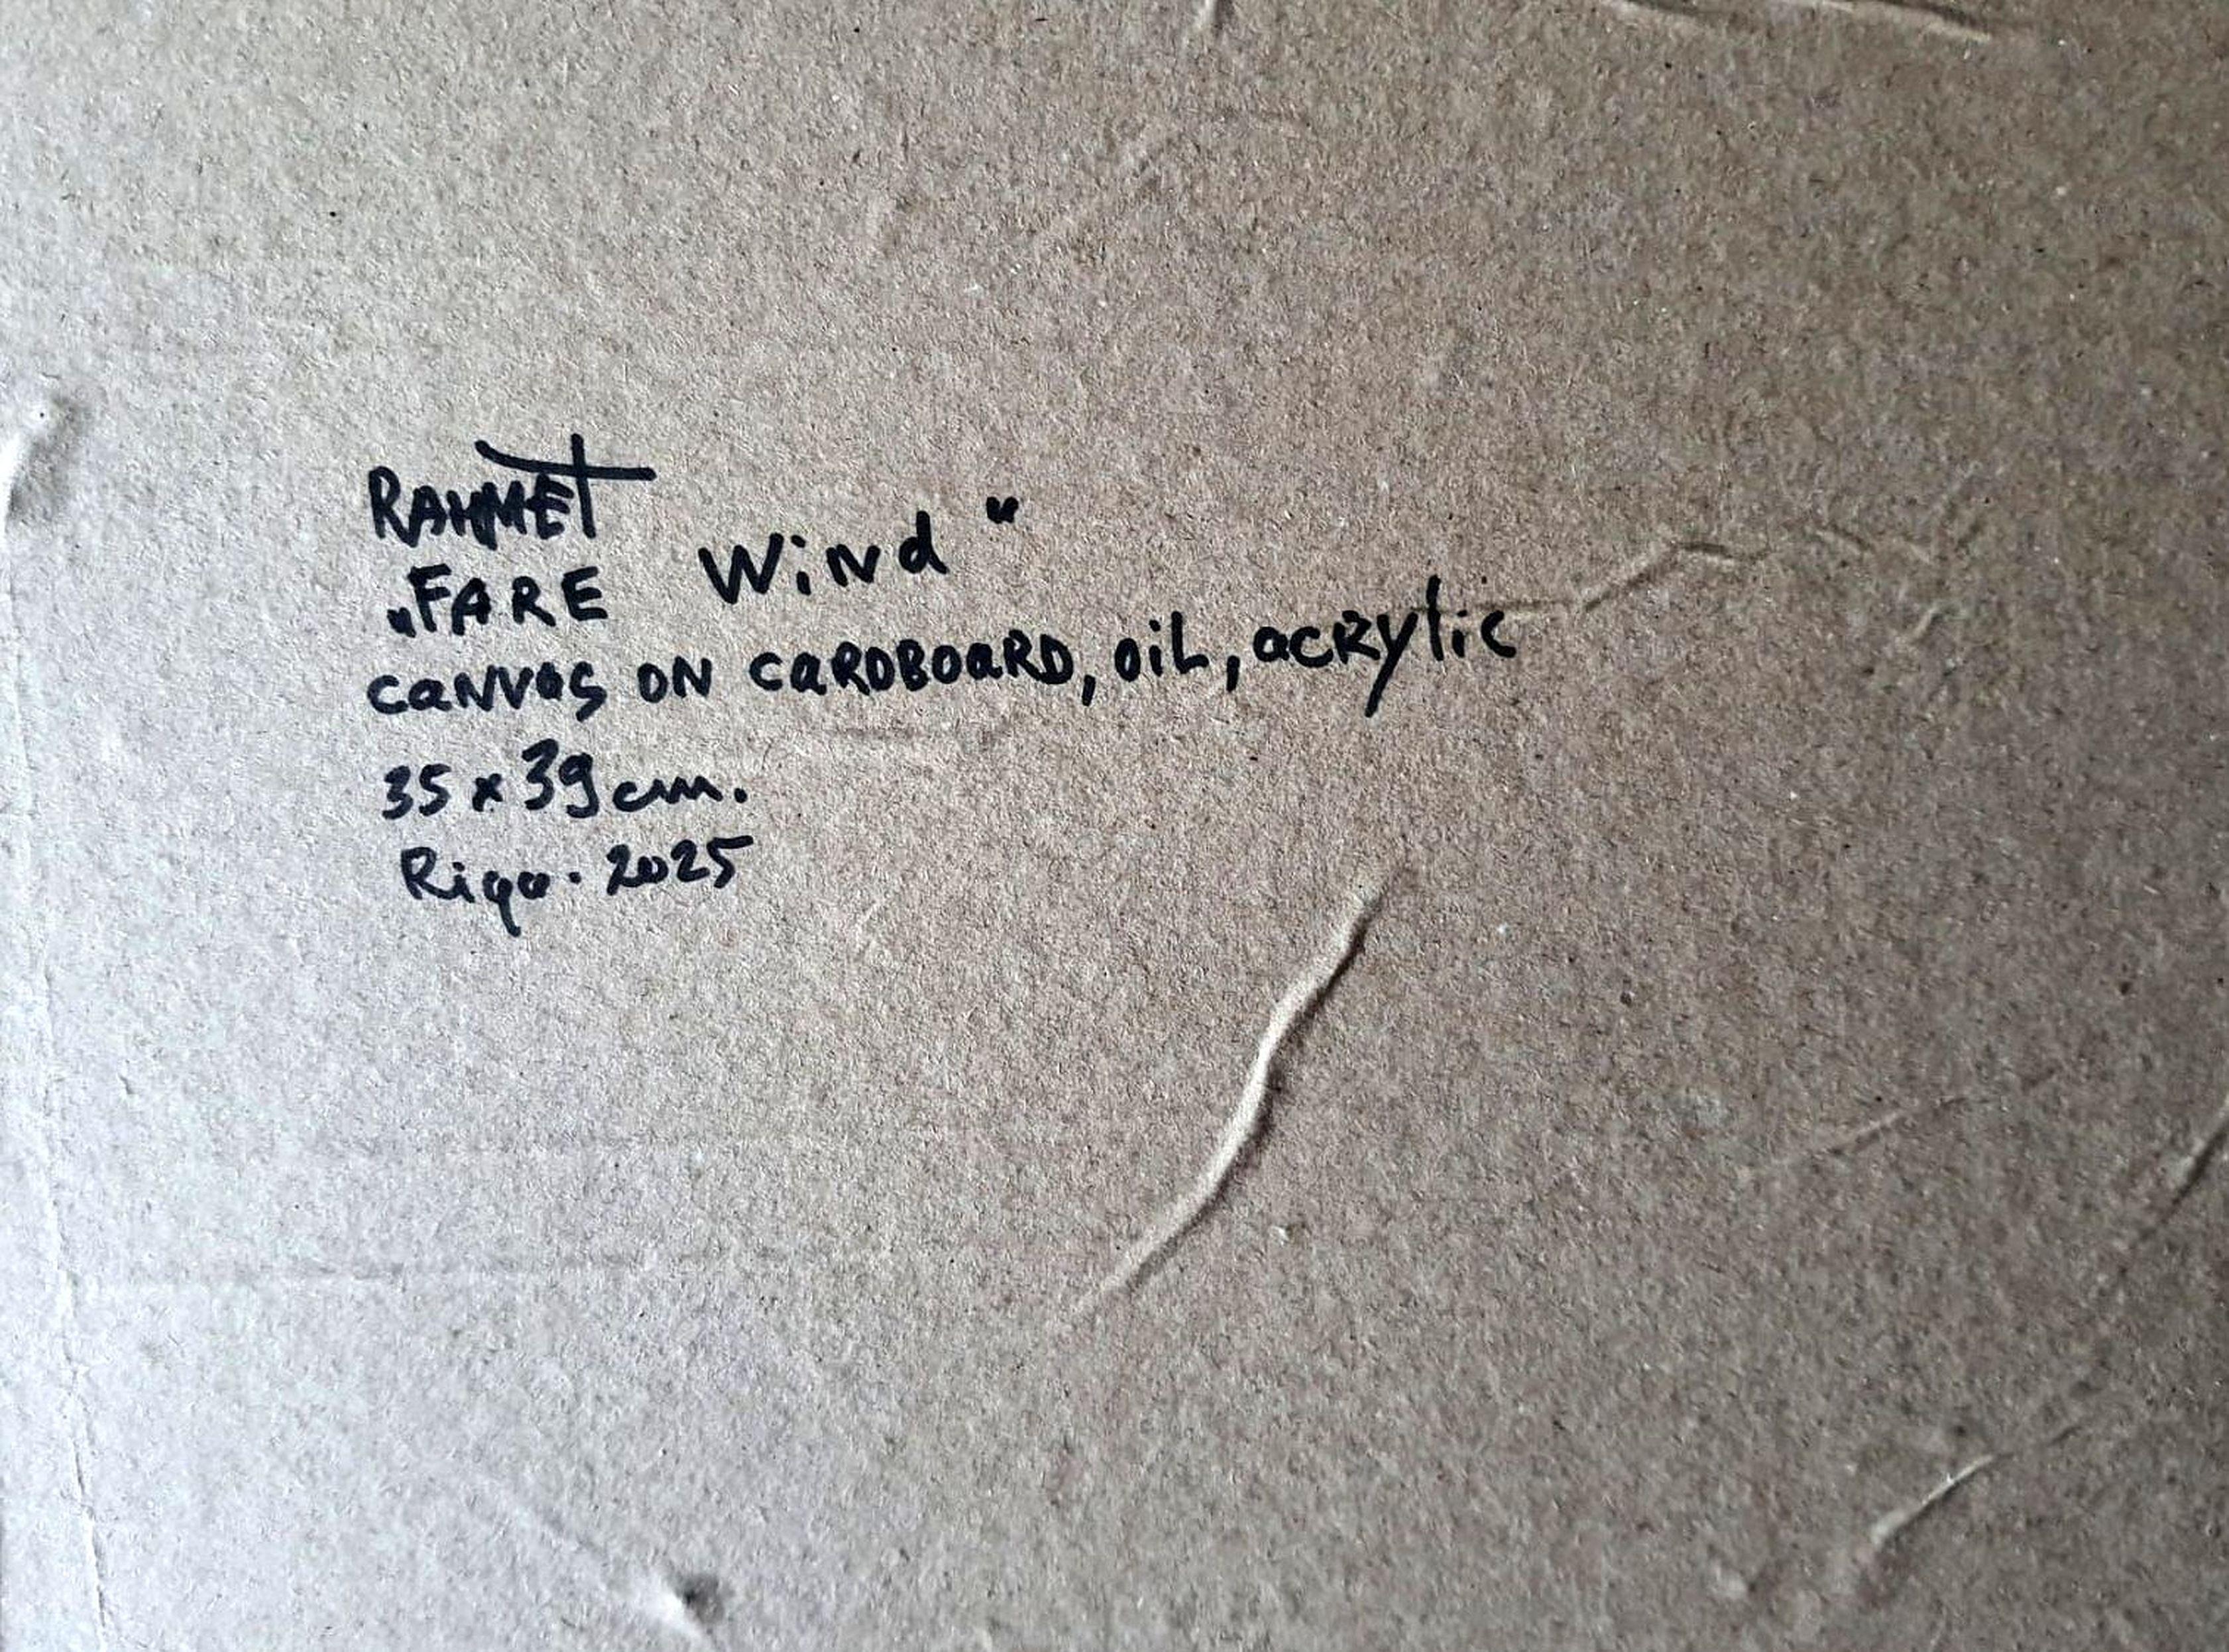 RAHMET
„FARE Wind“
CANVAS ON CARDBOARD, OIL, ACRYLIC
35 x 39 cm.
Riga. 2025